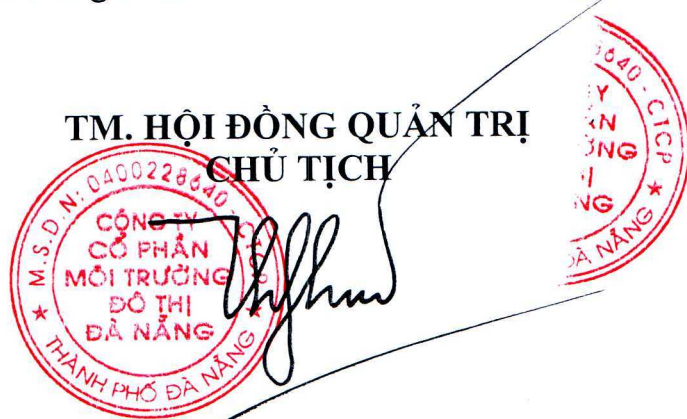 TM. HỘI ĐỒNG QUẢN TRỊ
CHỦ TỊCH
M.S.D.N: 0400228640 - CTCP
CÔNG TY
CỔ PHẦN
MÔI TRƯỜNG
ĐÔ THỊ
ĐÀ NẴNG
THÀNH PHỐ ĐÀ NẴNG
8640 - CTCP
Y
ẦN
ỜNG
Ị
NG
ĐÀ NẴNG